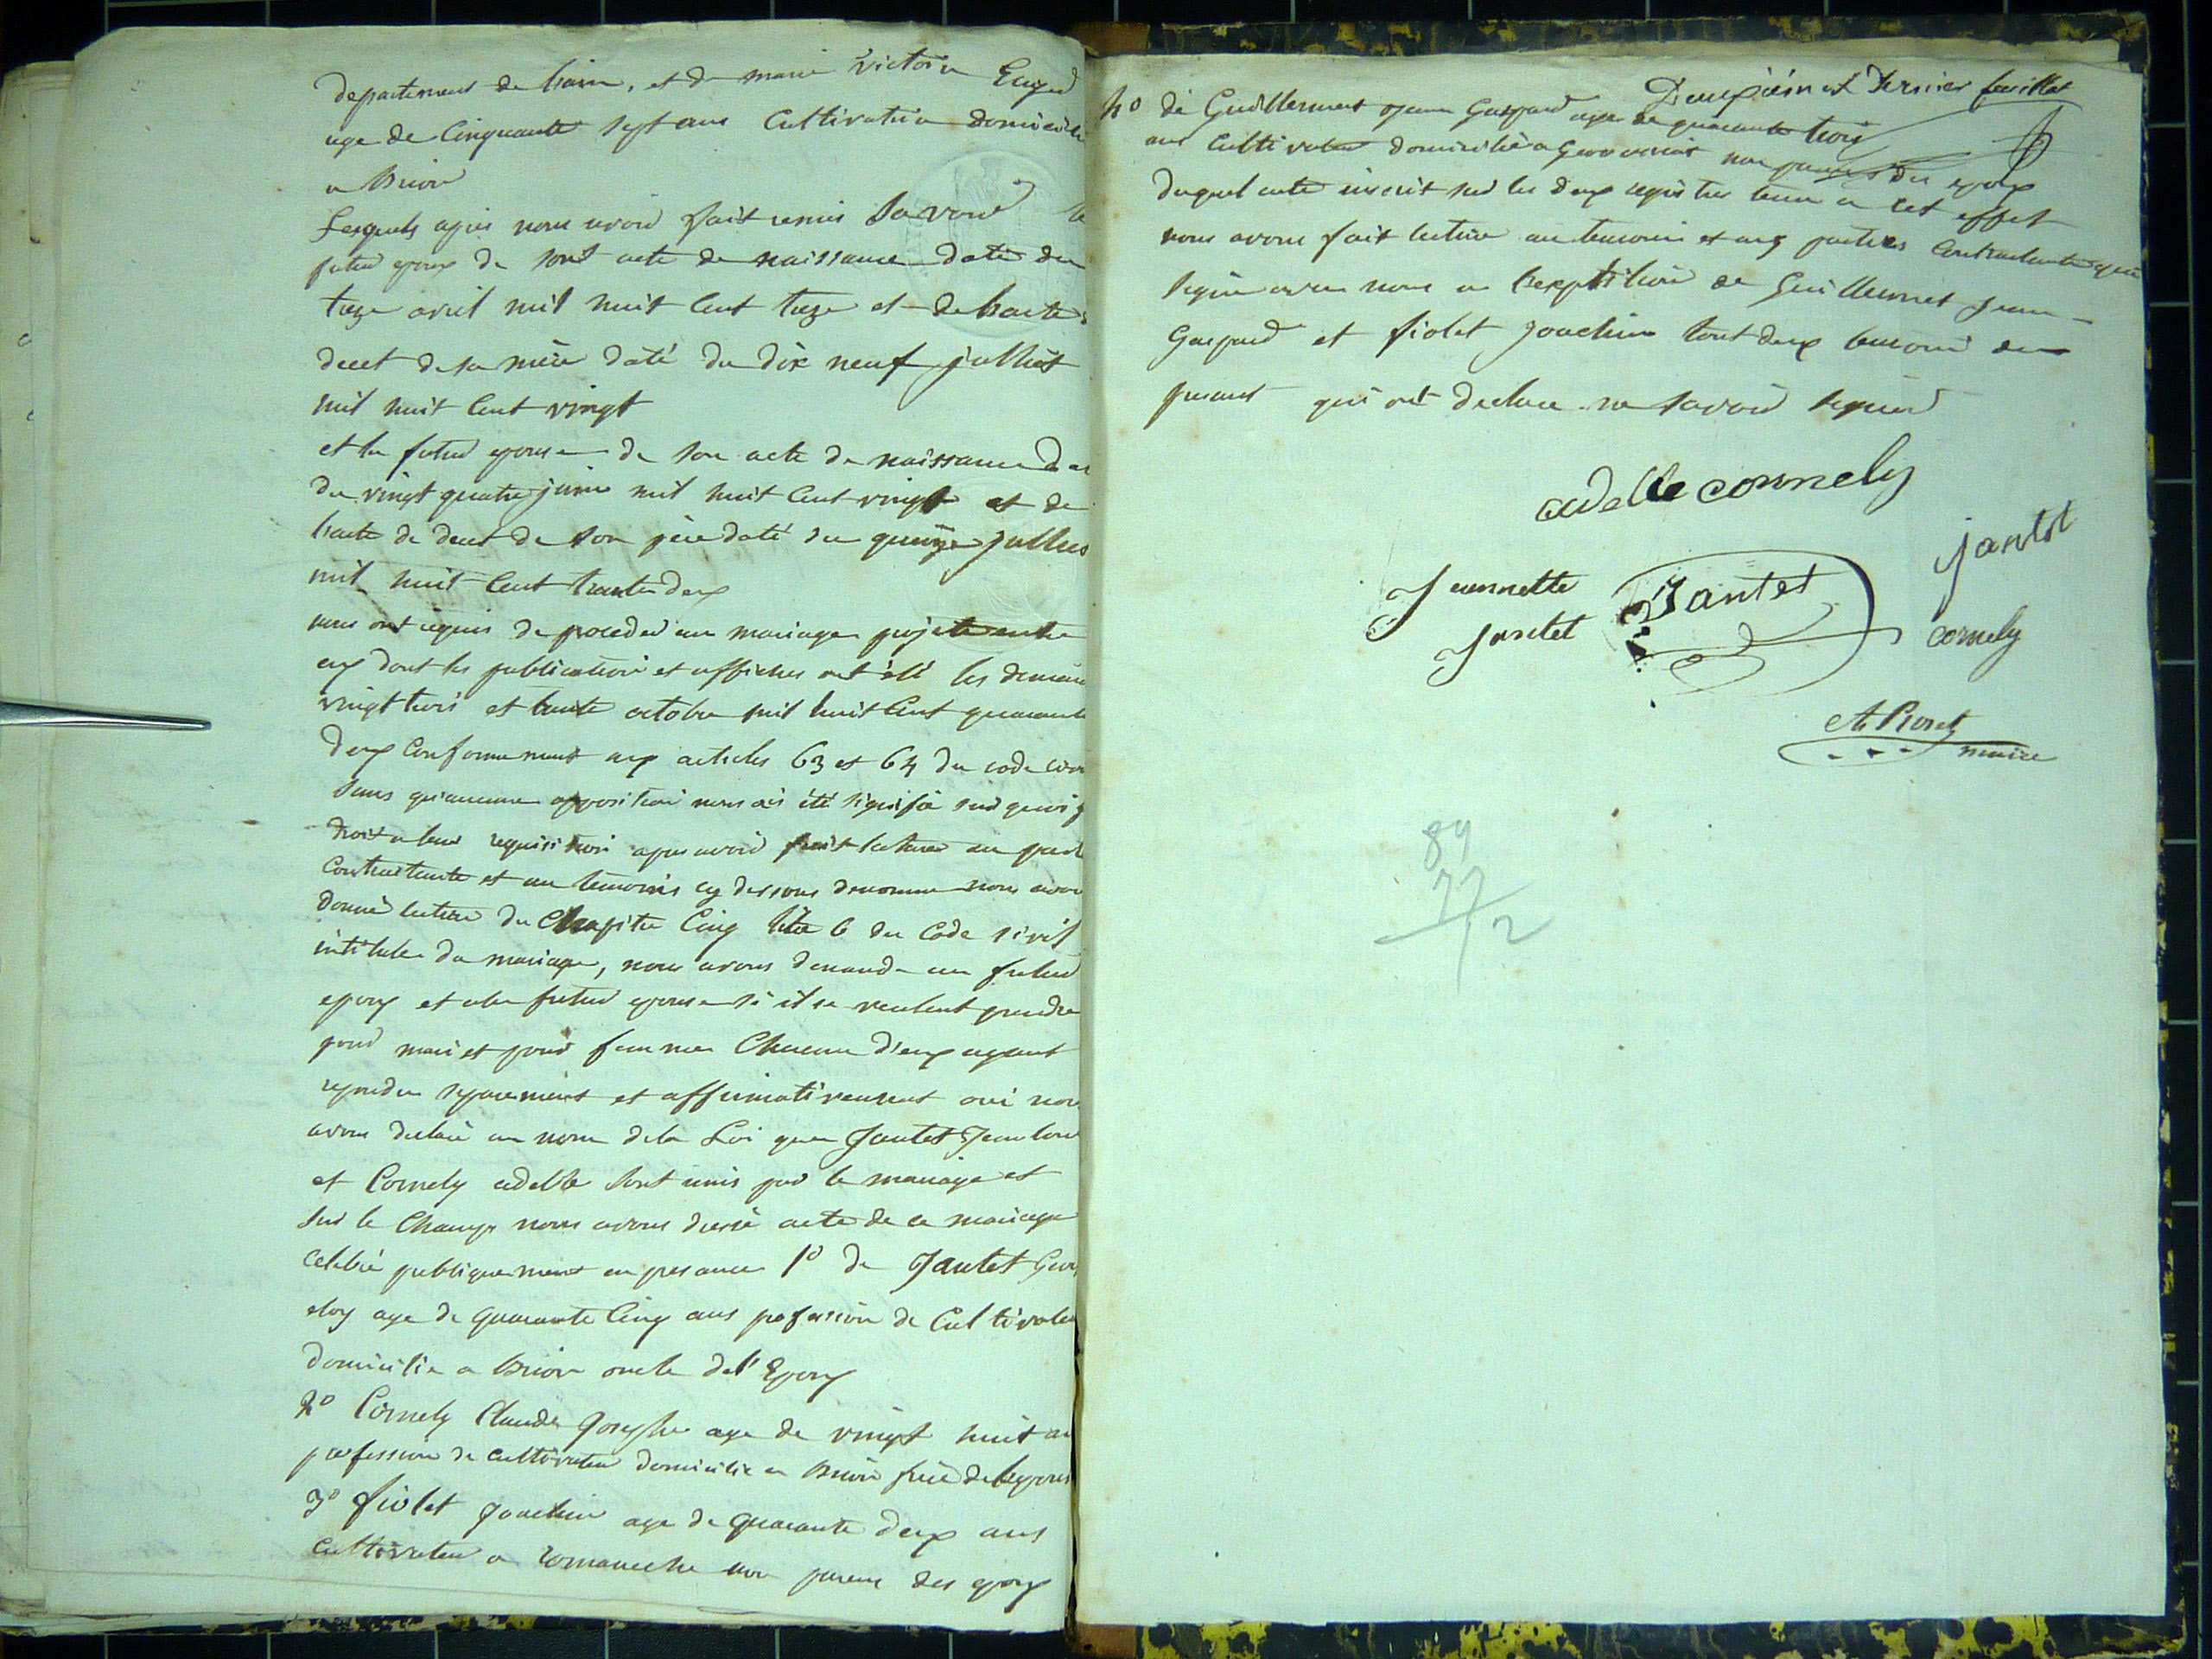 departement de lain, et de marie victoire
age de Cinquante sept ans Cultivatrice domicilie
a Brion
Lesquels apres nous avoir fait remis Savoir le
futur epoux de sont acte de naissance daté du
treze avril mil huit Cent treze et de lacte
decet de sa mère daté du dix neuf julliet
mil huit Cent vingt
et la futur epouse de son acte de naissance
du vingt quatre juin mil huit Cent vingt et de
lacte de decet de son père daté du quinze
mil huit Cent trante deux
nous ont requis de proceder au mariage projeté entre
eux dont les publication et affiches ont été les
vingt trois et trante octobre mil huit Cent quarante
deux Conformement aux articles 63 et 64 du code
Sans qu'aucune opposition nous ais été signifié
droit a leur requisition apres avoir fait lecture au
Contractante et au temoins cy dessous denomme nous
donné lecture du Chapitre Cinq titre 6 du Code sivil
intitulé du mariage, nous avons demandé au futur
epoux et a la futur epouse si il se veulent prendre
pour mari et pour femme Chacun d'eux ayant
repondu separement et affirmativement oui nous
avons declaré au nom de la Loi que Jantet Jean
et Cornely adelle Sont unis par le mariage et
Sur le Champ nous avons dressé acte de ce mariage
celebré publiquement en presance 1º de Jantet
eloy age de quarante Cinq ans profession de
domicilie a Brion oncle de l'Epoux
2º Cornely Claude Josephe age de vingt huit
profession de cultivateur domicilie a Brion frère de
3º fiolet Joachim age de quarante deux ans
cultivateur a romaneche non parent des epoux
Deuxième et Dernier feuillet
4º de Guillermet Jean Gaspard age de quarante trois
ans Cultivateur domicilié a non parent des epoux
duquel acte inscrit sur les deux registres tenu a cet effet
nous avons fait lecture au temoins et aux parties Contractante
signé avec nous a lexeption de Guillermet Jean
Gaspard et fiolet Joachim tout deux temoins
qui ont declaré ne Savoir signer
adelle cornely
Jantet
Jeannette
Jantet
Jantet
cornely
maire
89
77
12